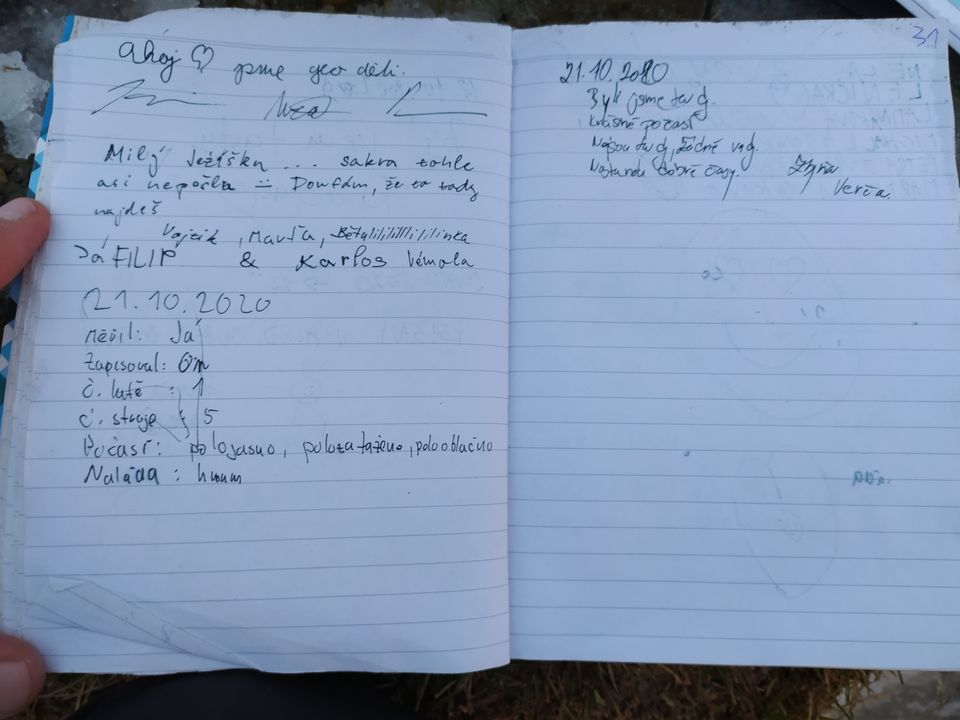 Ahoj ♡ jsme geo děti.
Milý Ježíšku ... sakra tohle
asi nepočká = Doufám, že to tady
najdeš
Vojtík, Mauša,
Já FILIP & Karlos Vémola
21.10.2020
Měřil: Já
Zapisoval: On
č. latě : 1
č. stroje : 5
Počasí: polojasno, polozataženo, polooblačno
Nálada : hmmm
31
21.10.2020
Byli jsme tady.
Krásné počasí
Nejsou tady, žádné vady.
Nastanou dobré časy.
Verča.